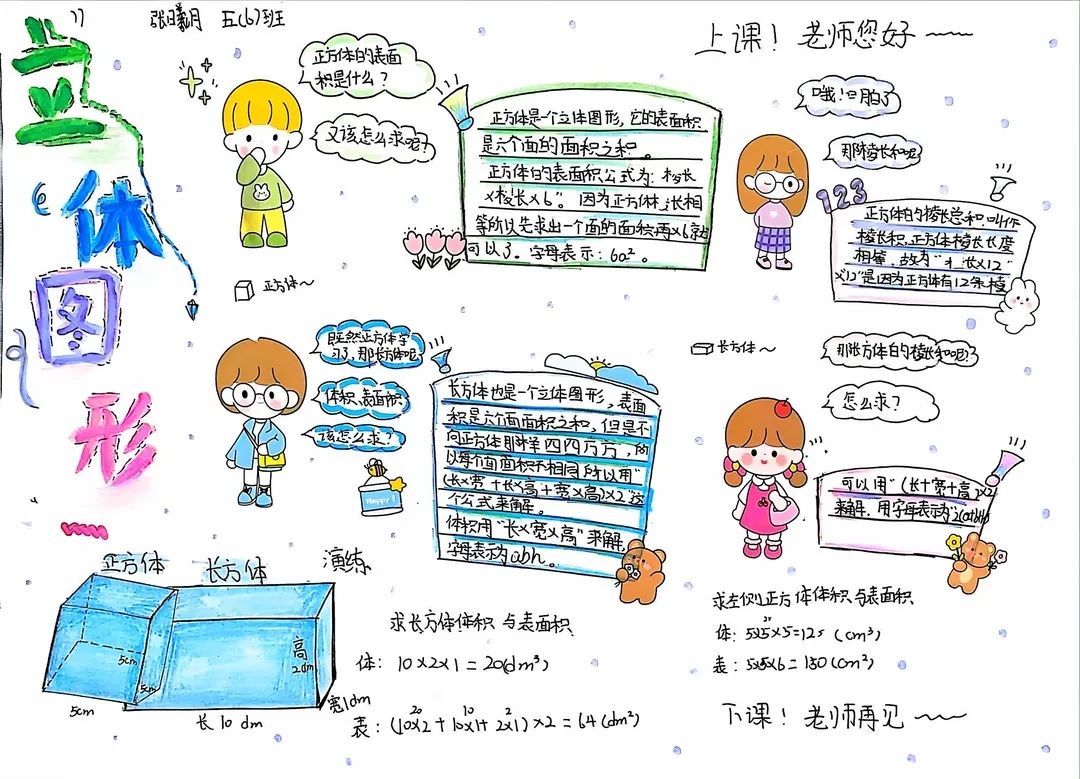 立体图形
张曦月 五(6)班
上课！老师您好
正方体的表面
积是什么？
又该怎么求呢？
正方体是一个立体图形，它的表面积
是六个面的面积之积。
正方体的表面积公式为：棱长
×棱长×6"。因为正方体
相
等所以先求出一个面的面积再×6就
可以了。字母表示：6a²。
正方体～
哦！明白了
那棱长和呢
123
正方体的棱长总和叫作
棱长积，正方体棱长长度
相等，故为"长×12"
"×12"是因为正方体有12条棱
既然正方体学
习了，那长方体呢
体积、表面积
该怎么求？
Happy!
长方体也是一个立体图形，表面
积是六个面面积之和，但是不
向正方体那样四四方方，所
以每个面面积不相同所以用"
(长×宽+长×高+宽×高)×2这
个公式来解。
体积用"长×宽×高"来解，
字母表示为abh。
长方体～
那长方体的棱长和呢？
怎么求？
可以用"(长+宽+高)×2
来解，用字母表示为
正方体
长方体
演练
5cm
5cm
5cm
长10dm
宽1dm
高
2dm
求长方体体积与表面积
体：10×2×1=20(dm³)
20 10 2
表：(10×2+10×1+2×1)×2=64(dm²)
求左侧正方体体积与表面积
25
体：5×5×5=125(cm³)
表：5×5×6=150(cm²)
下课！老师再见